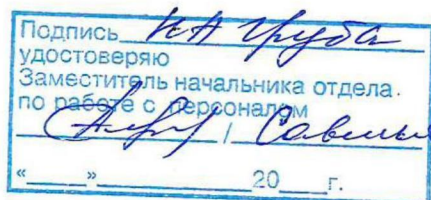 Подпись Н.А Груба
удостоверяю
Заместитель начальника отдела
по работе с персоналом
/
«____»____________20___г.